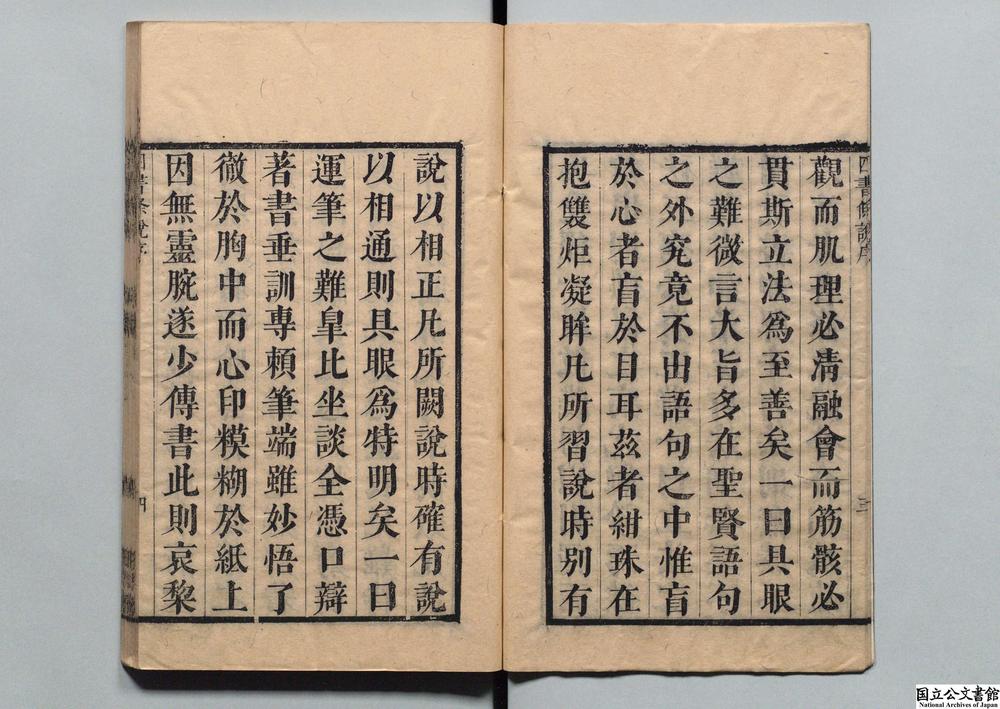 四書條說序
三
觀而肌理必清融會而筋骸必
貫斯立法爲至善矣一曰具眼
之難微言大旨多在聖賢語句
之外究竟不出語句之中惟盲
於心者盲於目耳茲者紺珠在
抱雙炬凝眸凡所習說時別有
說以相正凡所闕說時確有說
以相通則具眼爲特明矣一曰
運筆之難皐比坐談全憑口辯
著書垂訓專賴筆端雖妙悟了
徹於胸中而心印糢糊於紙上
因無靈腕遂少傳書此則哀黎
四書條說序
四
国立公文書館
National Archives of Japan